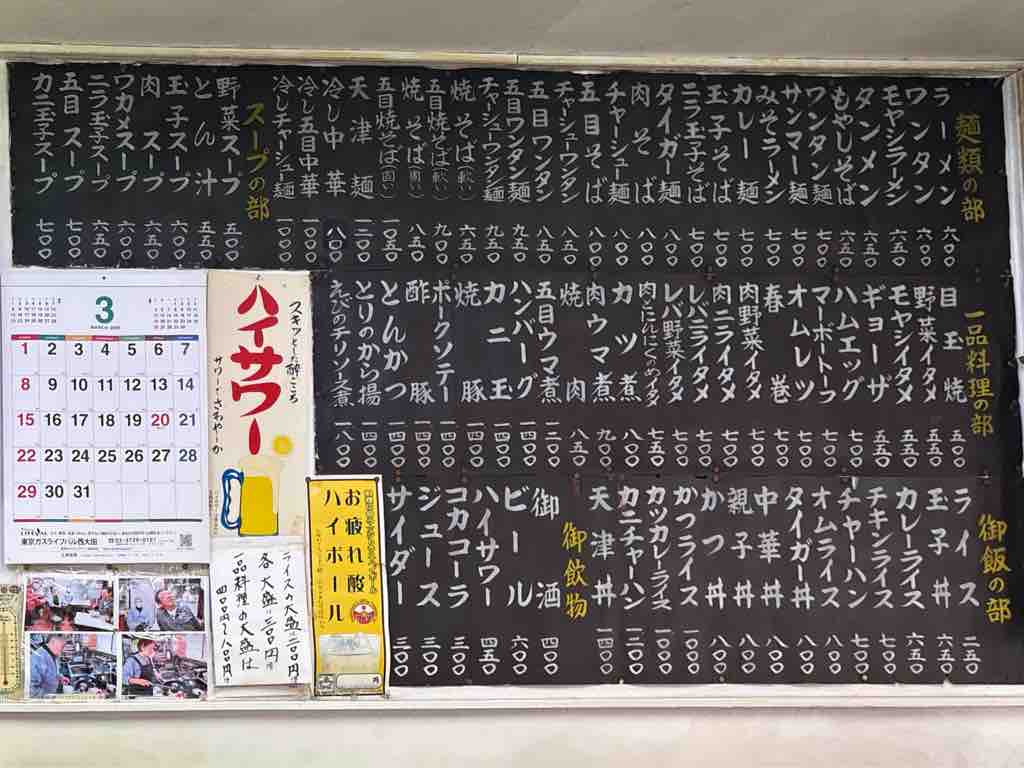 麺類の部
ラーメン 六〇〇
ワンタン 六〇〇
モヤシラーメン 六五〇
タンメン 六五〇
もやしそば 六五〇
ワンタン麺 七〇〇
サンマー麺 七〇〇
みそラーメン 七〇〇
カレー麺 七〇〇
玉子そば 七〇〇
ニラ玉子そば 七〇〇
タイガー麺 八〇〇
肉そば 八〇〇
チャーシュー麺 八〇〇
五目そば 八〇〇
チャーシューワンタン 八五〇
五目ワンタン 八五〇
五目ワンタン麺 九五〇
チャーシューワンタン麺 九五〇
焼そば(軟い) 六五〇
五目焼そば(軟い) 九〇〇
焼そば(固い) 八五〇
五目焼そば(固い) 一〇五〇
天津麺 一二〇〇
冷し中華 八〇〇
冷し五目中華 一〇〇〇
冷しチャーシュー麺 一〇〇〇
スープの部
野菜スープ 五〇〇
とん汁 五五〇
玉子スープ 六〇〇
肉スープ 六五〇
ワカメスープ 六五〇
ニラ玉子スープ 六五〇
五目スープ 七〇〇
カニ玉子スープ 七〇〇
一品料理の部
目玉焼 五〇〇
野菜イタメ 五五〇
モヤシイタメ 五五〇
ギョーザ 五五〇
ハムエッグ 七〇〇
マーボートーフ 七〇〇
オムレツ 七〇〇
春巻 七〇〇
肉野菜イタメ 七〇〇
肉ニライタメ 七〇〇
レバニライタメ 七〇〇
レバ野菜イタメ 七〇〇
肉とにんにくの芽イタメ 七五〇
カツ煮 八〇〇
肉ウマ煮 九〇〇
焼肉 八五〇
五目ウマ煮 一二〇〇
ハンバーグ 一四〇〇
カニ玉 一四〇〇
焼豚 一四〇〇
ポークソテー 一四〇〇
酢豚 一四〇〇
とんかつ 一四〇〇
とりのから揚 一四〇〇
えびのチリソース煮 一八〇〇
御飯の部
ライス 二五〇
玉子丼 六五〇
カレーライス 六五〇
チキンライス 七〇〇
チャーハン 七〇〇
オムライス 八〇〇
タイガー丼 八〇〇
中華丼 八〇〇
親子丼 八〇〇
かつ丼 八〇〇
かつライス 一〇〇〇
カツカレーライス 一〇〇〇
カニチャーハン 一二〇〇
天津丼 一四〇〇
御飲物
御酒 四〇〇
ビール 六〇〇
ハイサワー 四五〇
コカコーラ 三〇〇
ジュース 三〇〇
サイダー 三〇〇
スキッとした酔ごころ
ハイサワー
サワー…さわやーか
お疲れ酸
ハイボール
円
ライスの大盛二〇〇円
各大盛三〇〇円
一品料理の大盛は
四〇〇円〜八〇〇円
3
1 2 3 4 5 6 7
8 9 10 11 12 13 14
15 16 17 18 19 20 21
22 23 24 25 26 27 28
29 30 31
東京ガスライフバル西大田